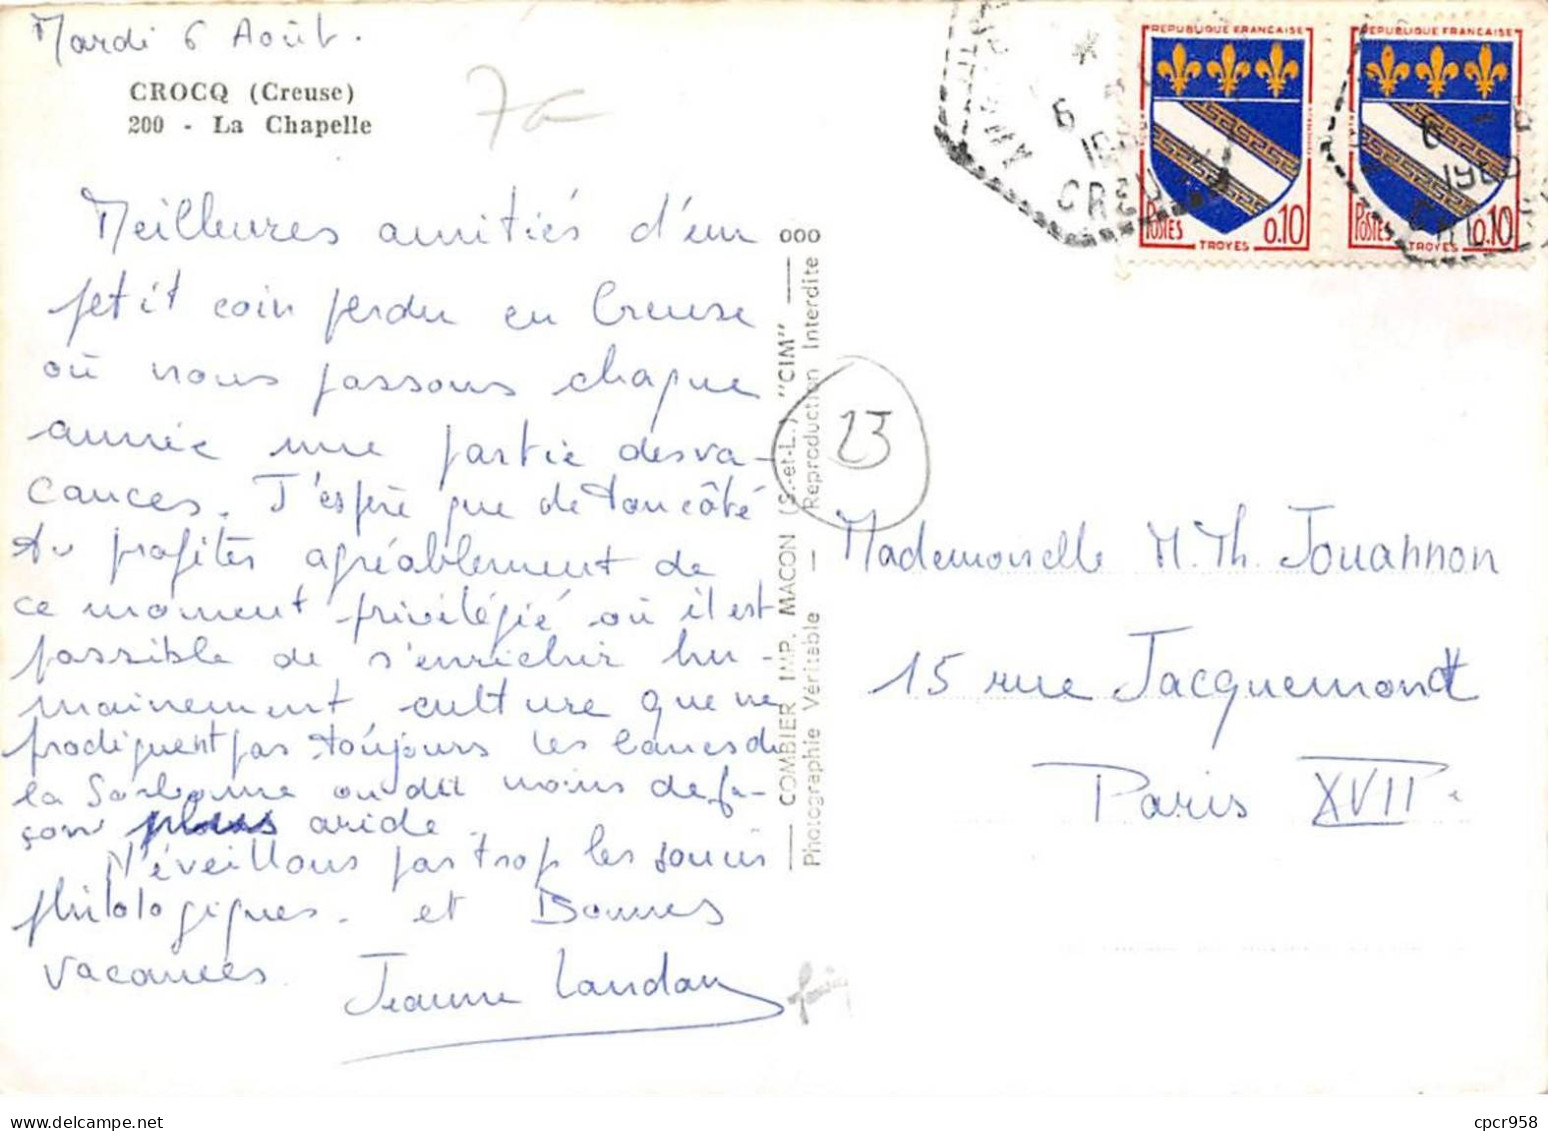 Mardi 6 Août.
CROCQ (Creuse)
200 - La Chapelle
Meilleures amitiés d'un
petit coin perdu en Creuse
où nous passons chaque
année une partie des va-
cances. J'espère que de ton côté
tu profites agréablement de
ce moment privilégié où il est
possible de s'enrichir hu-
mainement, culture que ne
prodiguent pas toujours les bancs de
la Sorbonne ou du moins de fa-
çon plus aride.
N'éveillons pas trop les soucis
philologiques. et Bonnes
vacances.
Jeanne Landau
COMBIER IMP. MACON (S.-et-L.) "CIM"
Photographie Véritable — Reproduction Interdite
23
REPUBLIQUE FRANCAISE
POSTES
TROYES
0.10
REPUBLIQUE FRANCAISE
POSTES
TROYES
0.10
6
CREUSE
6 - 8
Mademoiselle M. Th. Jouannon
15 rue Jacquemont
Paris XVII.
cpcr958